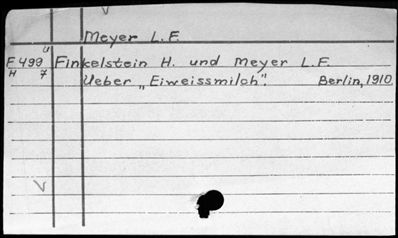 Meyer L. F.
u
F 499 Finkelstein H. und Meyer L. F.
H 7 Ueber „Eiweissmilch". Berlin, 1910